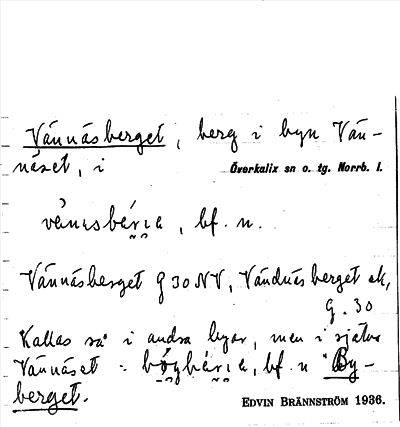 Vännäsberget, berg i byn Vän-
näset, i Överkalix sn o. tg. Norrb. l.
bf. n.
Vännäsberget G 30 NV, Vändnäsberget ek,
G. 30
Kallas så i andra byar, men i själva
Vännäset : bf. n "By-
berget.
EDVIN BRÄNNSTRÖM 1936.